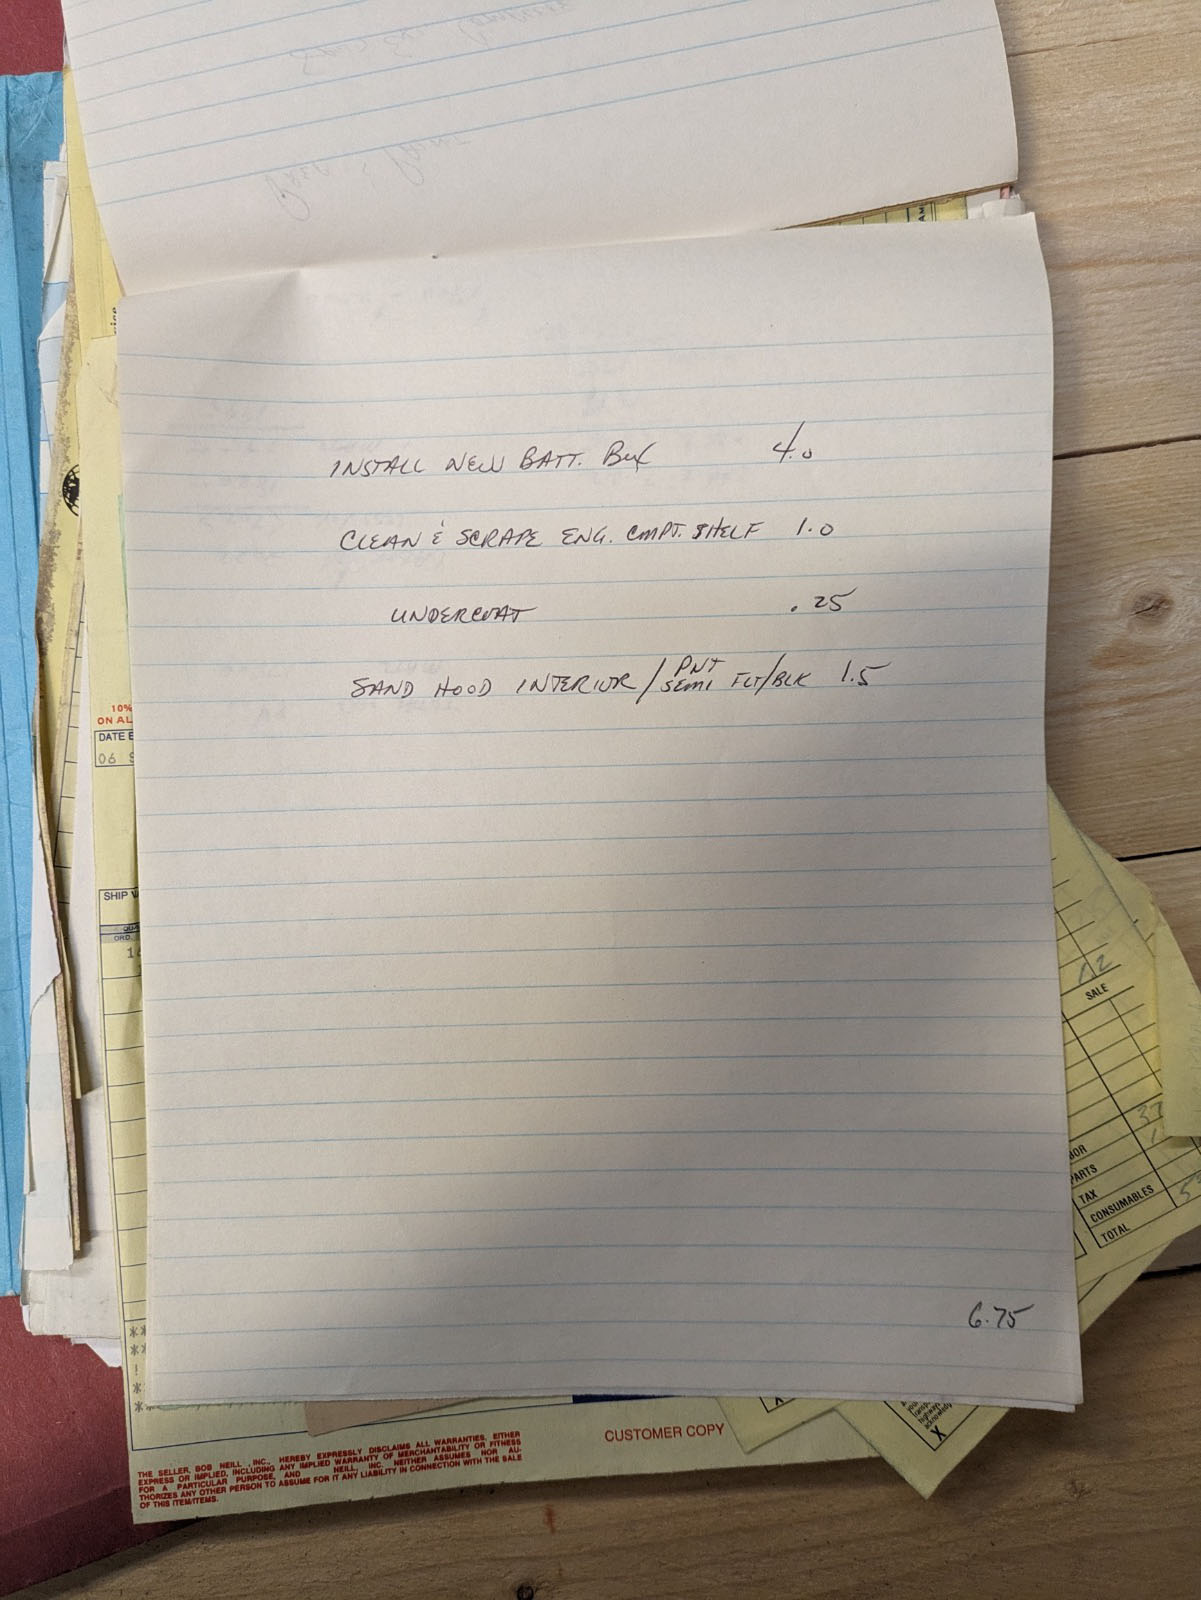 INSTALL NEW BATT. BOX 4.0
CLEAN & SCRAPE ENG. CMPT. SHELF 1.0
UNDERCOAT .25
SAND HOOD INTERIOR / PNT SEMI FLT/BLK 1.5
6.75
10%
ON AL
DATE E
06 S
SHIP V
QUA
ORD.
SALE
PARTS
TAX
CONSUMABLES
TOTAL
CUSTOMER COPY
THE SELLER, BOB NEILL, INC., HEREBY EXPRESSLY DISCLAIMS ALL WARRANTIES, EITHER
EXPRESS OR IMPLIED, INCLUDING ANY IMPLIED WARRANTY OF MERCHANTABILITY OR FITNESS
FOR A PARTICULAR PURPOSE, AND NEILL, INC. NEITHER ASSUMES NOR AU-
THORIZES ANY OTHER PERSON TO ASSUME FOR IT ANY LIABILITY IN CONNECTION WITH THE SALE
OF THIS ITEM/ITEMS.